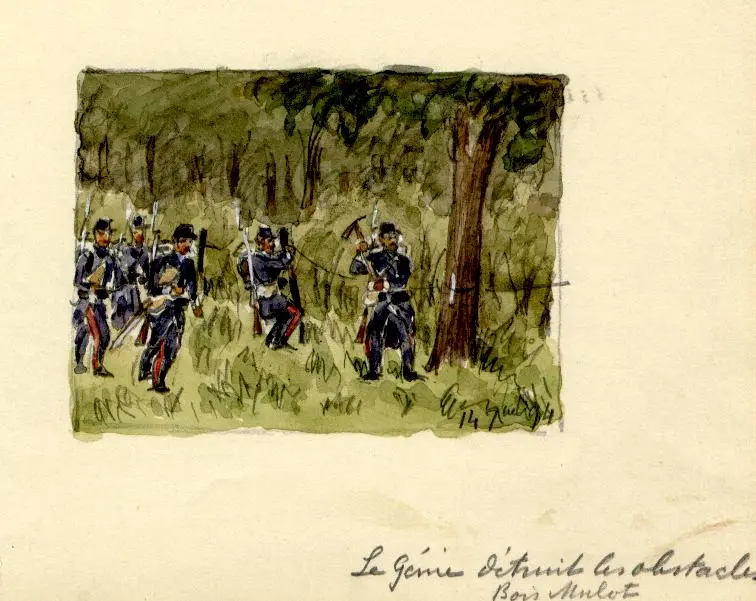 14 94
Le Génie détruit les obstacles
Bois Mulot